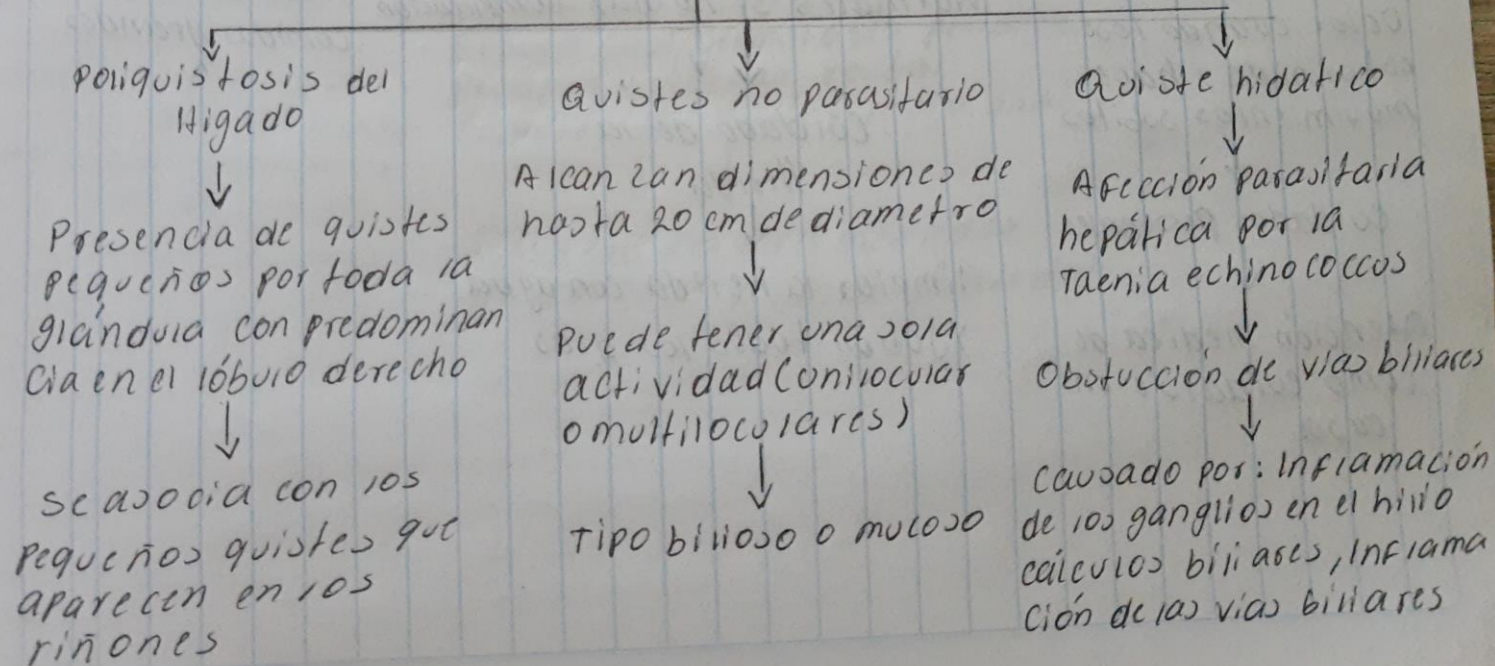 Poliquistosis del
Higado
Presencia de quistes
pequeños por toda la
glándula con predominan
cia en el lóbulo derecho
se asocia con los
pequeños quistes que
aparecen en los
riñones
Quistes no parasitario
Alcanzan dimensiones de
hasta 20 cm de diametro
puede tener una sola
actividad (unilocular
o multiloculares)
Tipo bilioso o mucoso
Quiste hidatico
Afección parasitaria
hepática por la
Taenia echinococcos
Obstucción de vias biliares
causado por: Inflamación
de los ganglios en el hilio
cálculos biliares, Inflama
ción de las vias biliares